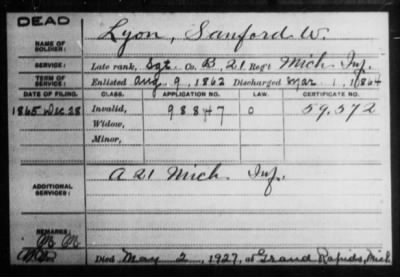 DEAD
NAME OF SOLDIER: Lyon, Sanford W.
SERVICE: Late rank, Sgt. Co. B, 21 Reg't Mich Inf.
TERM OF SERVICE: Enlisted Aug 9, 1862 Discharged Mar. 1, 1864
DATE OF FILING. CLASS. APPLICATION NO. LAW. CERTIFICATE NO.
1865 Dec 28 Invalid, 98847 0 59,572
Widow,
Minor,
ADDITIONAL SERVICES: A 21 Mich Inf.
REMARKS:
Died May 2, 1927, at Grand Rapids, Mich